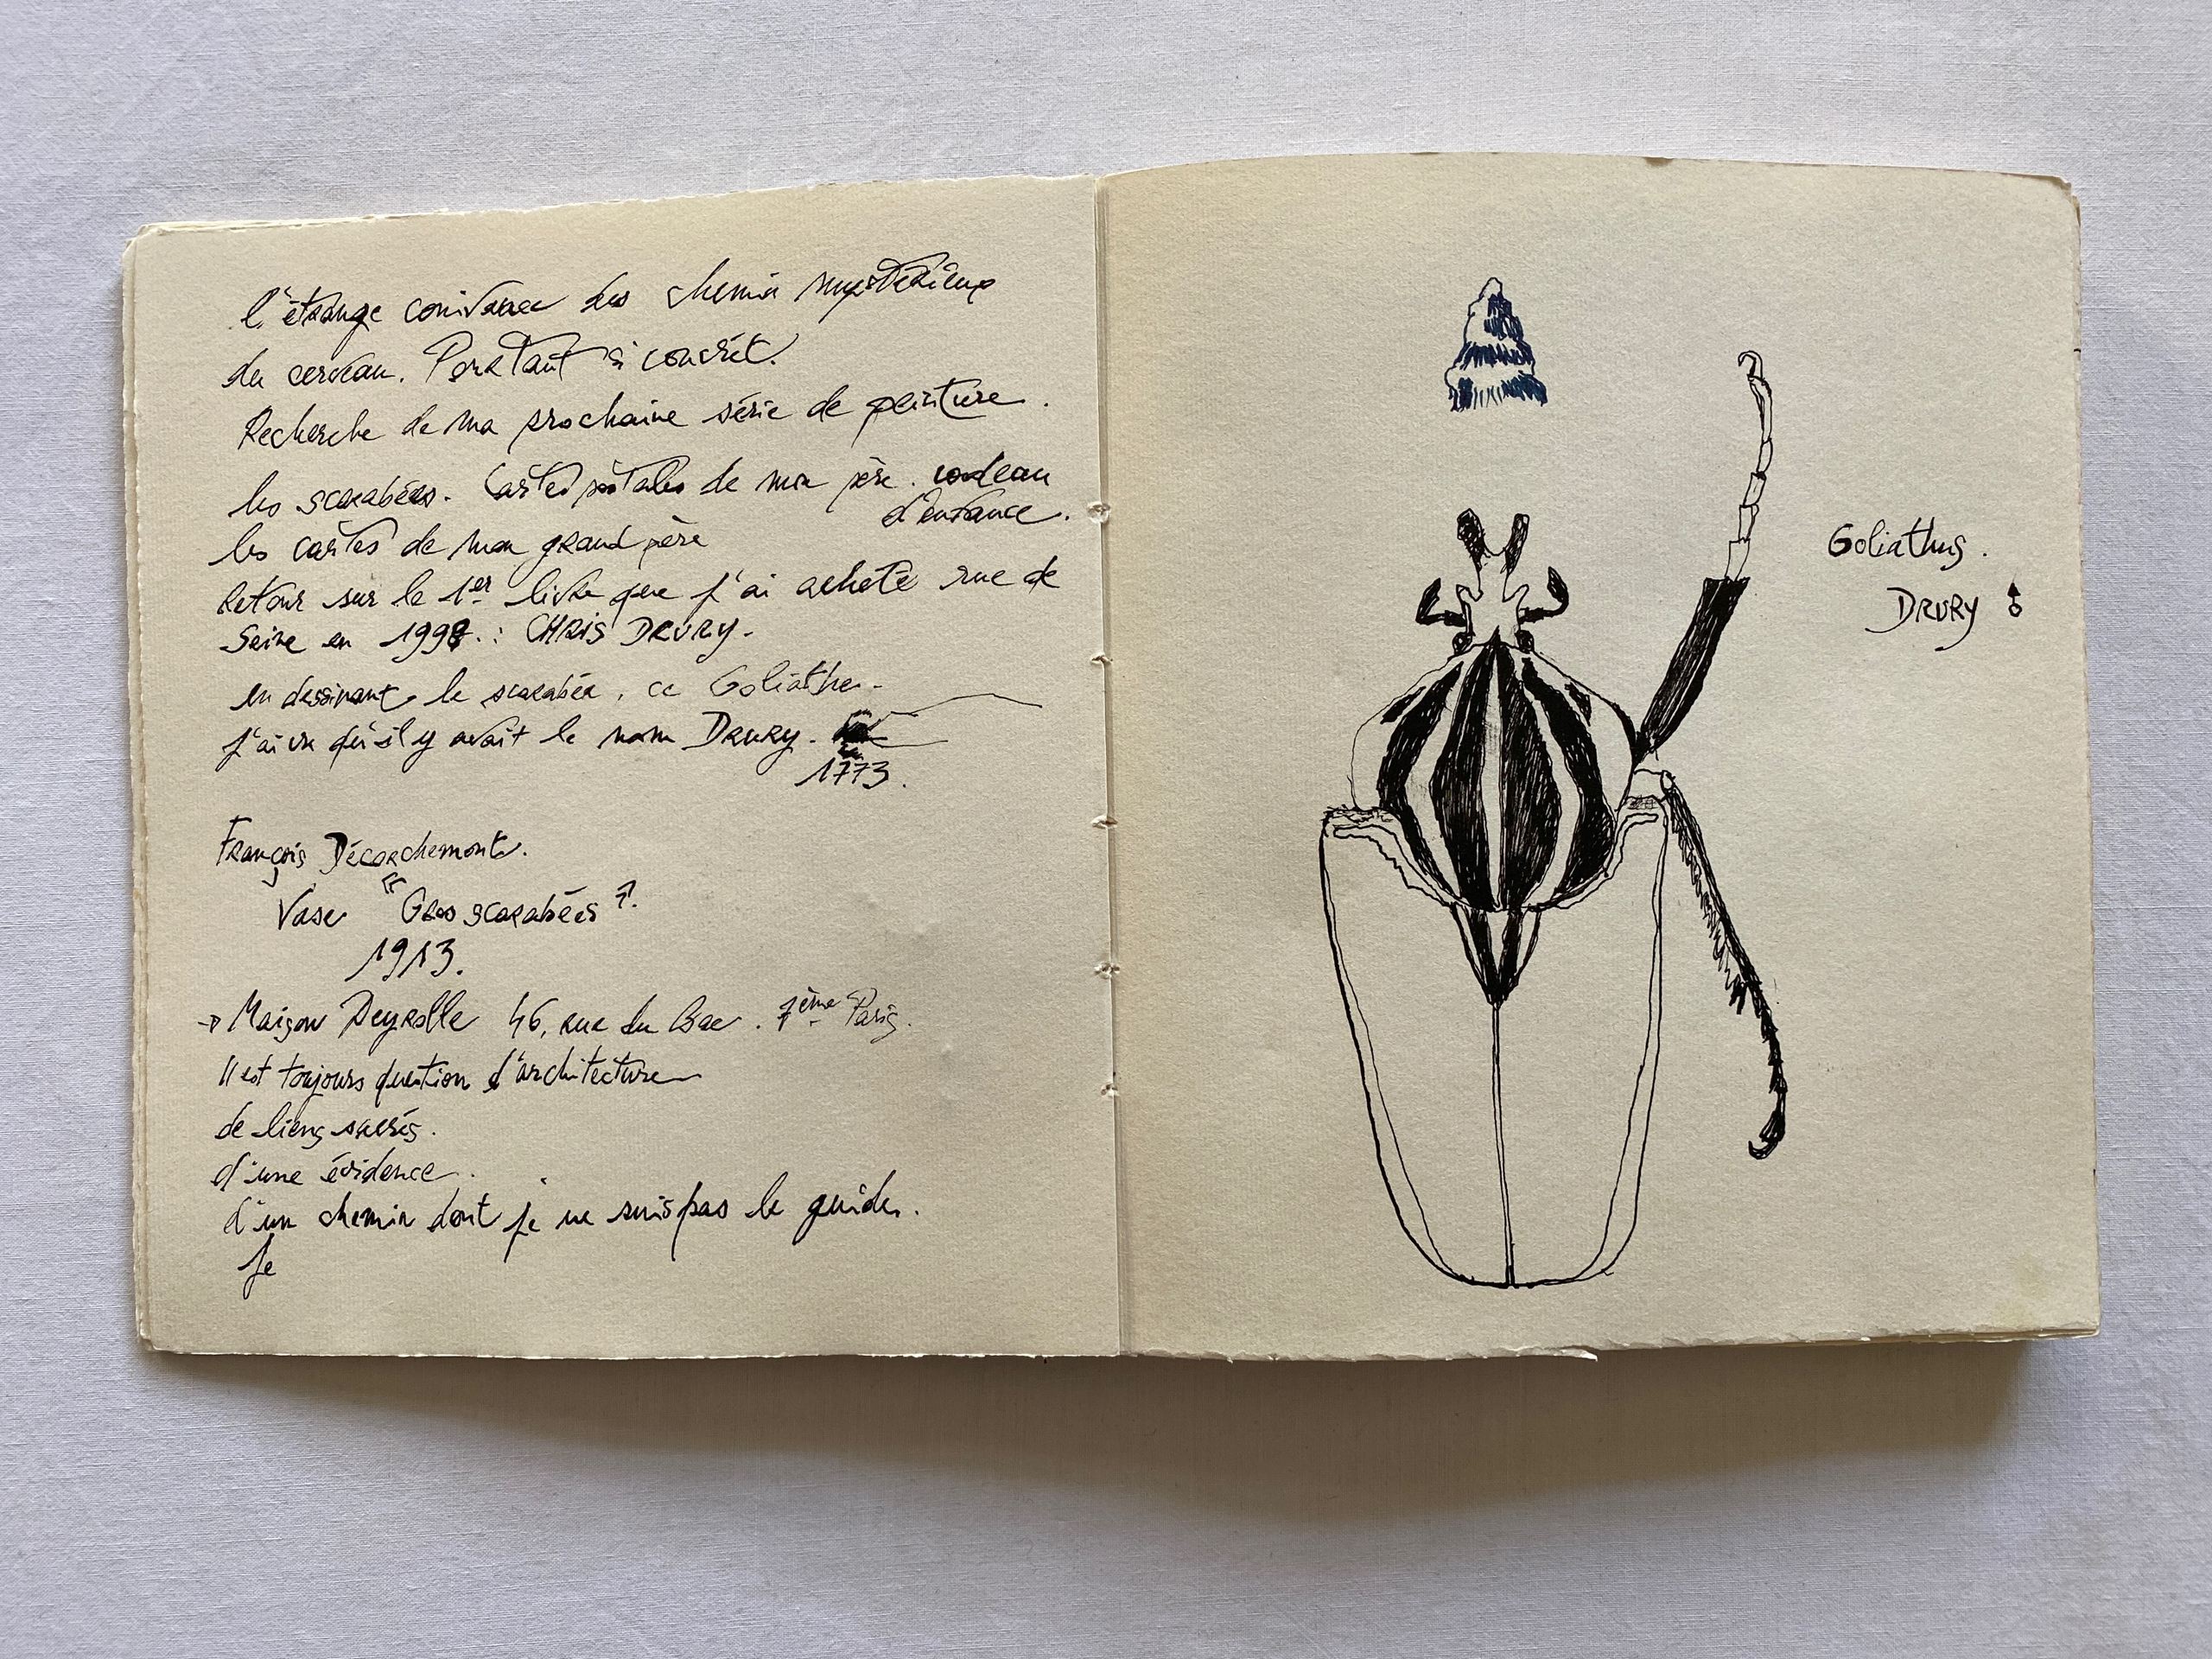 l'étrange conivance des chemin mystérieux
du cerveau. Pourtant si concrèt.
Recherche de ma prochaine série de peinture.
les scarabées. Cartes postales de mon père. cadeau
d'enfance.
les cartes de mon grand père
Retour sur le 1er livre que j'ai acheté rue de
Seine en 1998. : CHRIS DRURY.
en dessinant le scarabée, ce Goliathe.
j'ai vu qu'il y avait le nom DRURY.
1773.
François Décorchemont.
Vase "Gros scarabées".
1913.
→ Maison Deyrolle 46, rue du Bac. 7ème Paris.
Il est toujours question d'architecture
de liens sacrés.
d'une évidence.
d'un chemin dont je ne suis pas le guide.
Je
Goliathus.
DRURY ♂